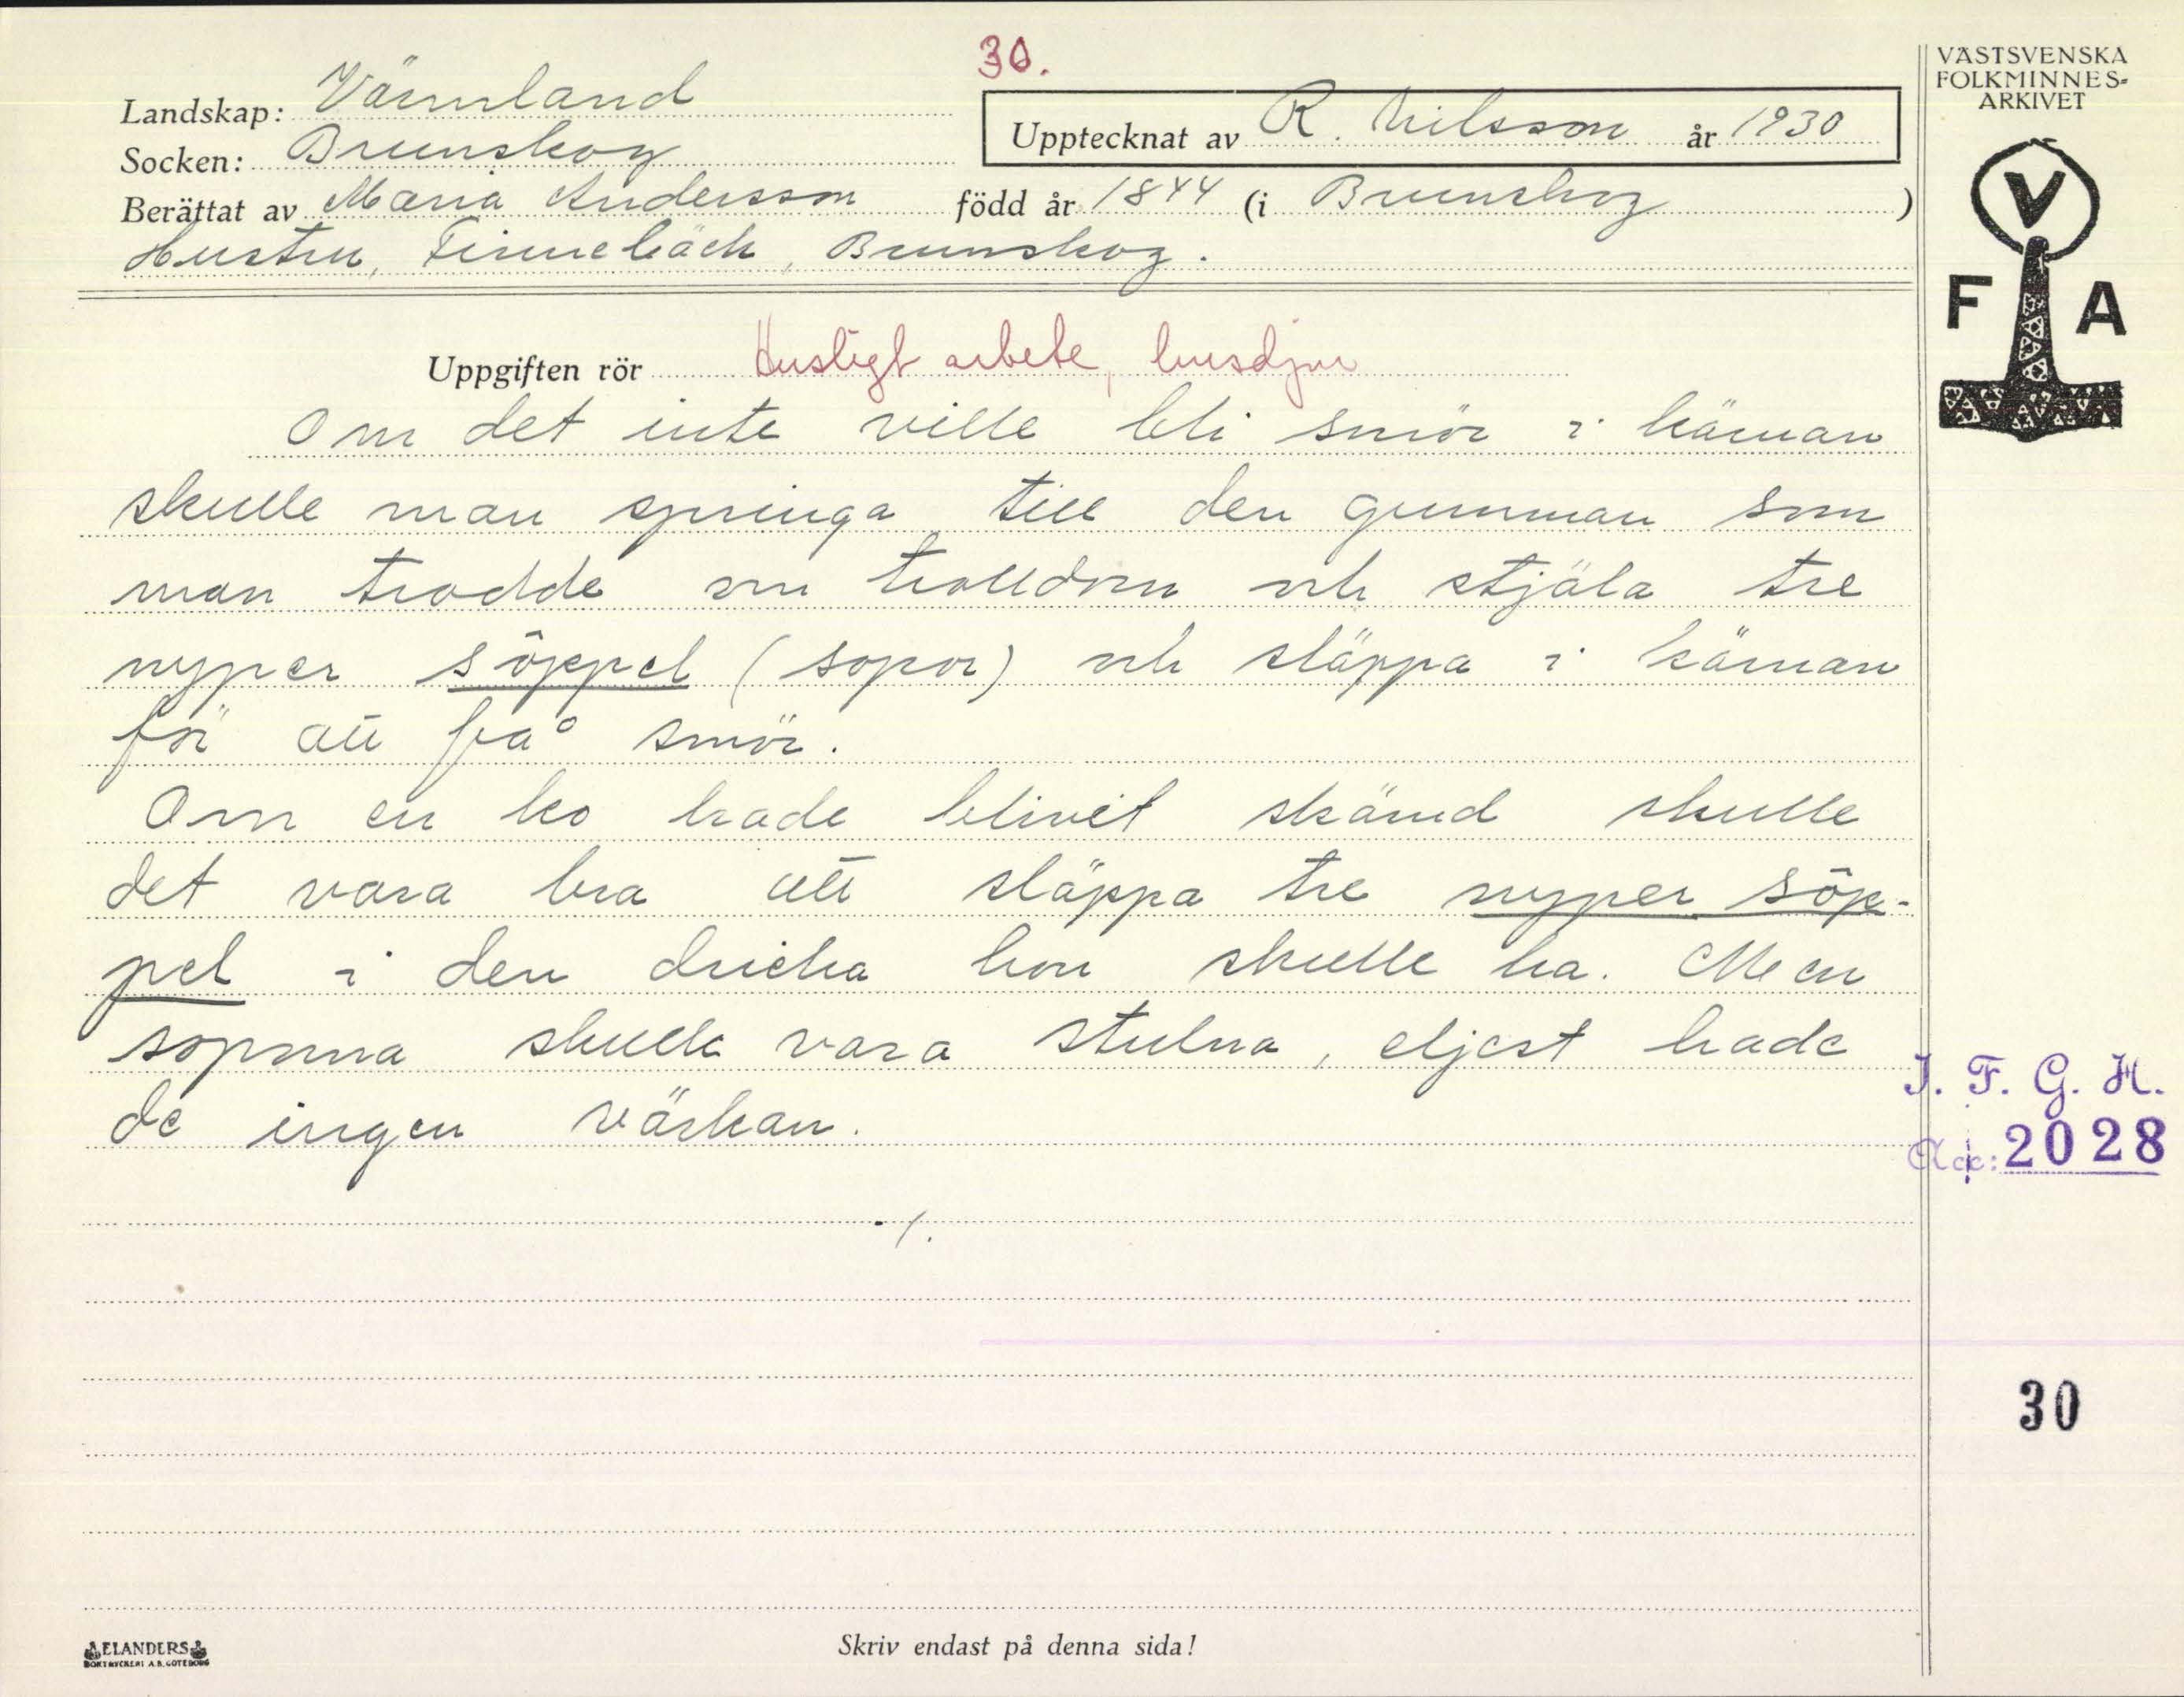 30.
VÄSTSVENSKA
FOLKMINNES-
ARKIVET
Landskap: Värmland
Upptecknat av R. Nilsson år 1930
Socken: Brunskog
Berättat av Maria Andersson född år 1844 (i Brunskog )
Hustru, Finnebäck, Brunskog.
V
F A
Uppgiften rör Husligt arbete, husdjur
Om det inte ville bli smör i kärnan
skulle man springa till den gumman som
man trodde om trolldom och stjäla tre
nyper söppel (sopor) och släppa i kärnan
för att få smör.
Om en ko hade blivit skämd skulle
det vara bra att släppa tre nyper söp-
pel i den dricka hon skulle ha. Men
soporna skulle vara stulna, eljest hade
de ingen värkan.
I. F. G. H.
Acc: 2028
./.
30
ELANDERS
BOKTRYCKERI A.B. GÖTEBORG
Skriv endast på denna sida!